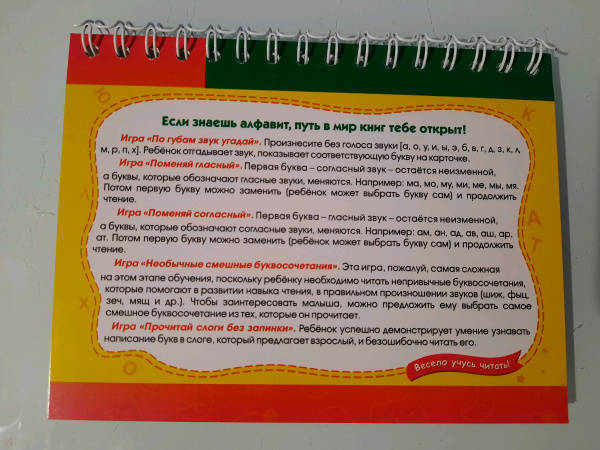 Если знаешь алфавит, путь в мир книг тебе открыт!
Игра «По губам звук угадай». Произнесите без голоса звуки [а, о, у, и, ы, э, б, в, г, д, з, к, л,
м, р, п, х]. Ребёнок отгадывает звук, показывает соответствующую букву на карточке.
Игра «Поменяй гласный». Первая буква – согласный звук – остаётся неизменной,
а буквы, которые обозначают гласные звуки, меняются. Например: ма, мо, му, ми, ме, мы, мя.
Потом первую букву можно заменить (ребёнок может выбрать букву сам) и продолжить
чтение.
Игра «Поменяй согласный». Первая буква – гласный звук – остаётся неизменной,
а буквы, которые обозначают согласные звуки, меняются. Например: ам, ан, ад, ав, аш, ар,
ат. Потом первую букву можно заменить (ребёнок может выбрать букву сам) и продолжить
чтение.
Игра «Необычные смешные буквосочетания». Эта игра, пожалуй, самая сложная
на этом этапе обучения, поскольку ребёнку необходимо читать непривычные буквосочетания,
которые помогают в развитии навыка чтения, в правильном произношении звуков (шиж, фыц,
зеч, мящ и др.). Чтобы заинтересовать малыша, можно предложить ему выбрать самое
смешное буквосочетание из тех, которые он прочитает.
Игра «Прочитай слоги без запинки». Ребёнок успешно демонстрирует умение узнавать
написание букв в слоге, который предлагает взрослый, и безошибочно читать его.
Весело учусь читать!
Ю
К
А
Л
Т
Х
О